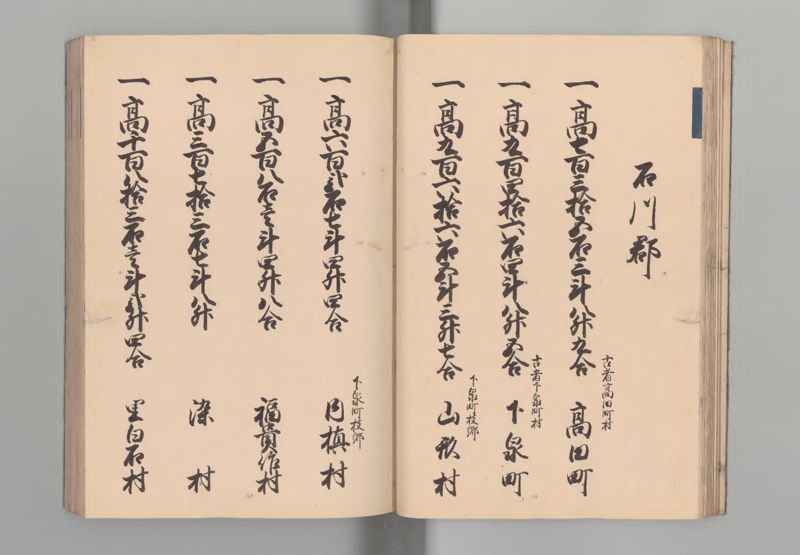 石川郡
一高七百三拾五石三斗八升九合 古者高田町村 高田町
一高九百四拾六石四斗八升五合 古者下泉町村 下泉町
一高九百六拾六石五斗三升七合 下泉町枝郷 山形村
一高六百弐石七斗四升四合 下泉町枝郷 母槙村
一高五百八石壱斗四升八合 福貴作村
一高三百七拾三石七斗八升 染村
一高千百八拾三石壱斗弐升四合 里白石村